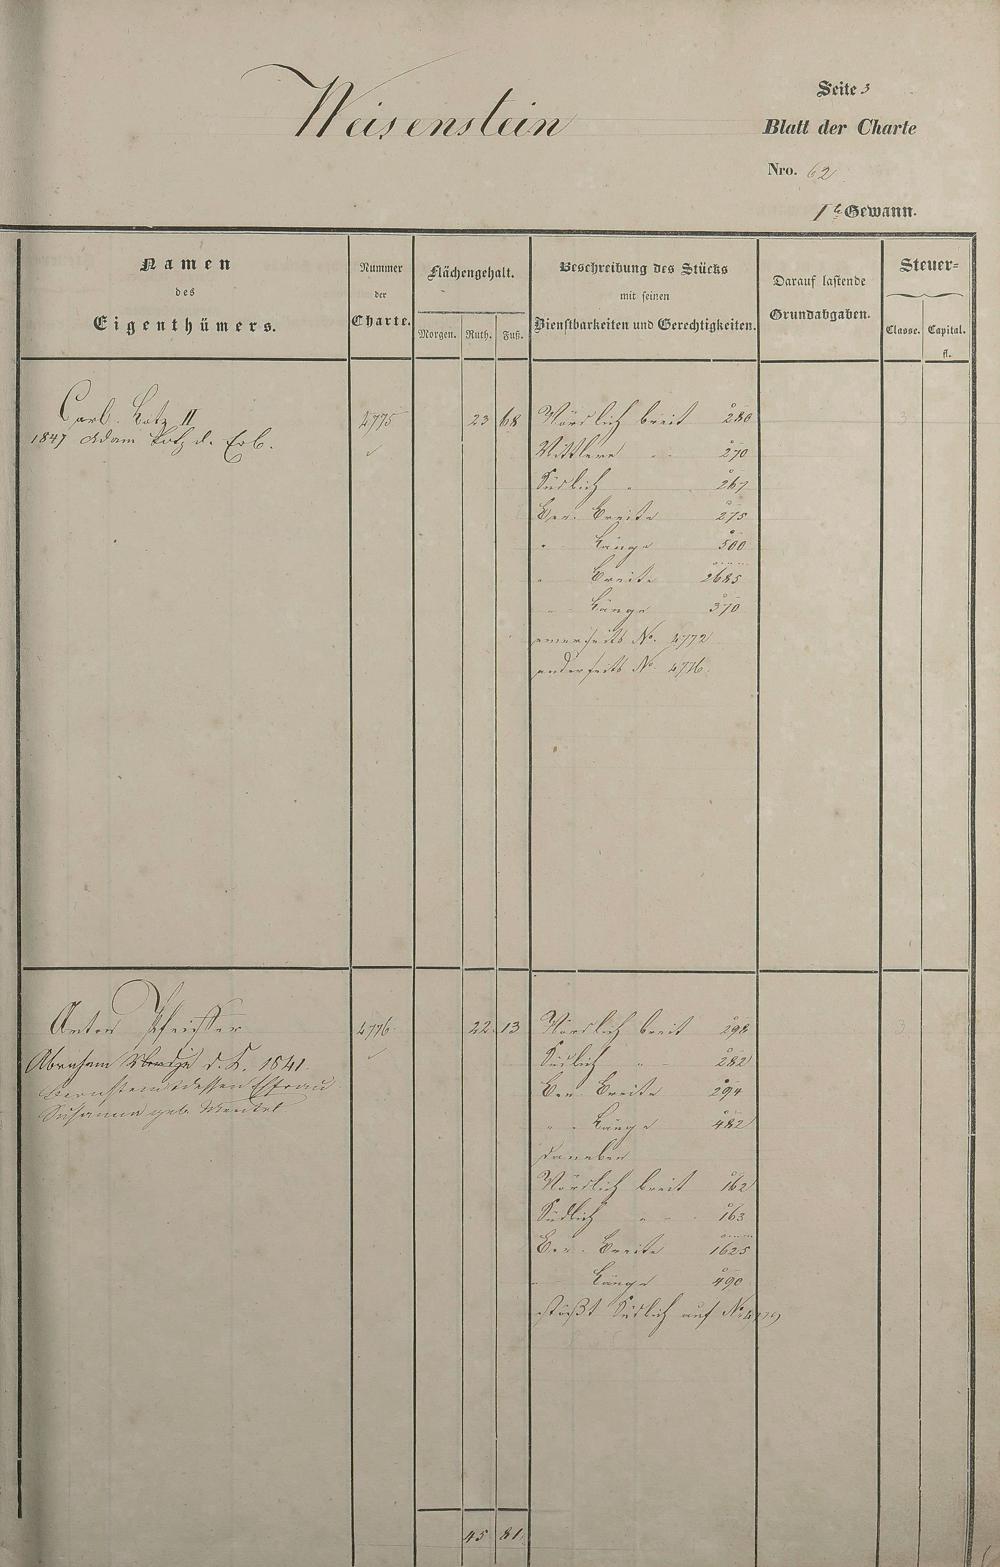 Weisenstein
Seite 3
Blatt der Charte
Nro. 62
1te Gewann.
Namen
des
Eigenthümers.
Nummer
der
Charte.
Flächengehalt.
Morgen. Ruth. Fuß.
Beschreibung des Stücks
mit seinen
Dienstbarkeiten und Gerechtigkeiten.
Darauf lastende
Grundabgaben.
Steuer=
Classe. Capital.
fl.
Carl Lotz II 4775 23 68 Nördlich breit 280 3
1847 Adam Lotz d. Erb.
Mittlere " 270
Südlich " 267
Ber. Breite 275
" Länge 500
" Breite 2685
" Länge 370
einerseits No. 4772
anderseits No. 4776
Anton Pfeiffer 4776 22 13 Nördlich breit 298 3
Abraham d. K. 1841
Südlich " 282
dessen Ehfrau
Ber. Breite 294
Susanna geb. Menkel
" Länge 482
daneben
Nördlich breit 162
Südlich " 163
Ber. Breite 1625
" Länge 490
stößt Südlich auf No
45 81